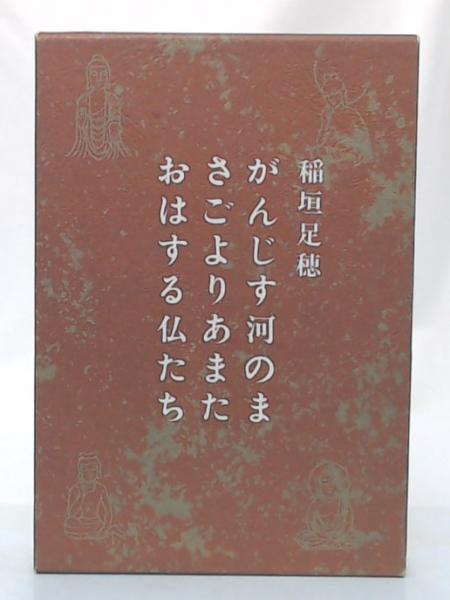 稲垣足穂
がんじす河のま
さごよりあまた
おはする仏たち